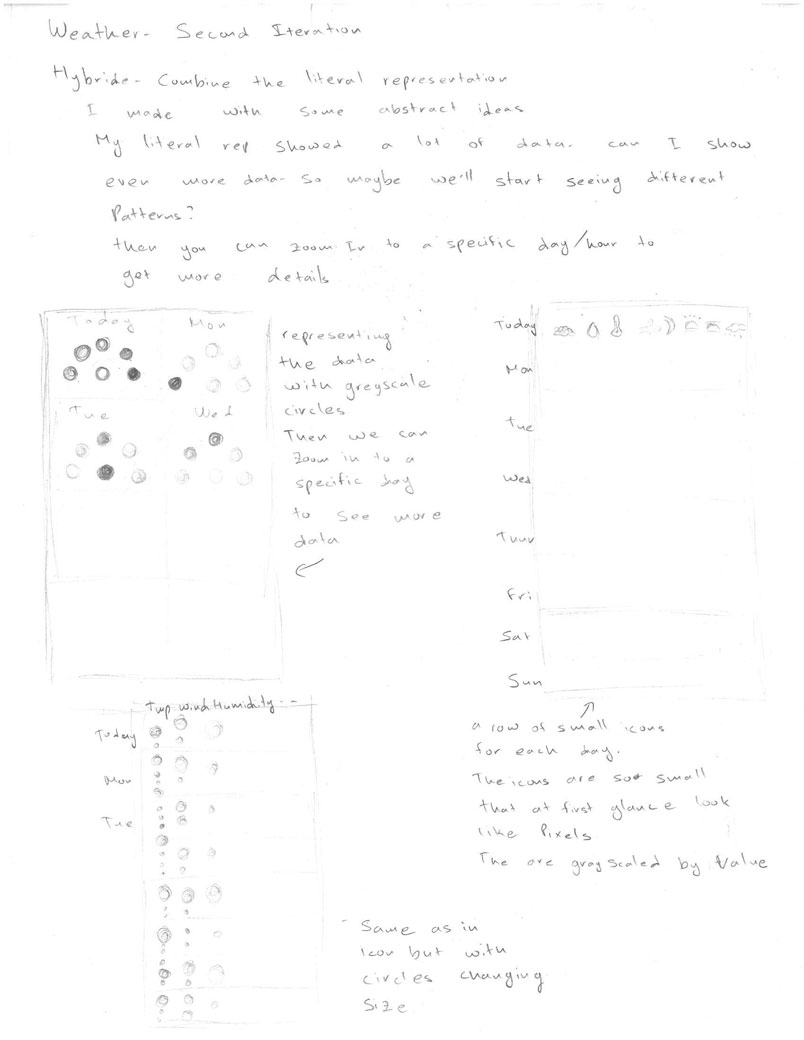 Weather- Second Iteration
Hybride- Combine the literal representation
I made with some abstract ideas
My literal rep showed a lot of data. can I show
even more data- so maybe we'll start seeing different
Patterns?
then you can zoom In to a specific day/hour to
get more details
Today Mon
Tue Wed
representing
the data
with greyscale
circles.
Then we can
zoom in to a
specific day
to see more
data
Today
Mon
Tue
Wed
Tuur
Fri
Sat
Sun
a row of small icons
for each day.
The icons are so small
that at first glance look
like Pixels
The are grayscaled by value
Tmp wind Humidity ..-
Today
Mon
Tue
Same as in
Icon but with
circles changing
Size